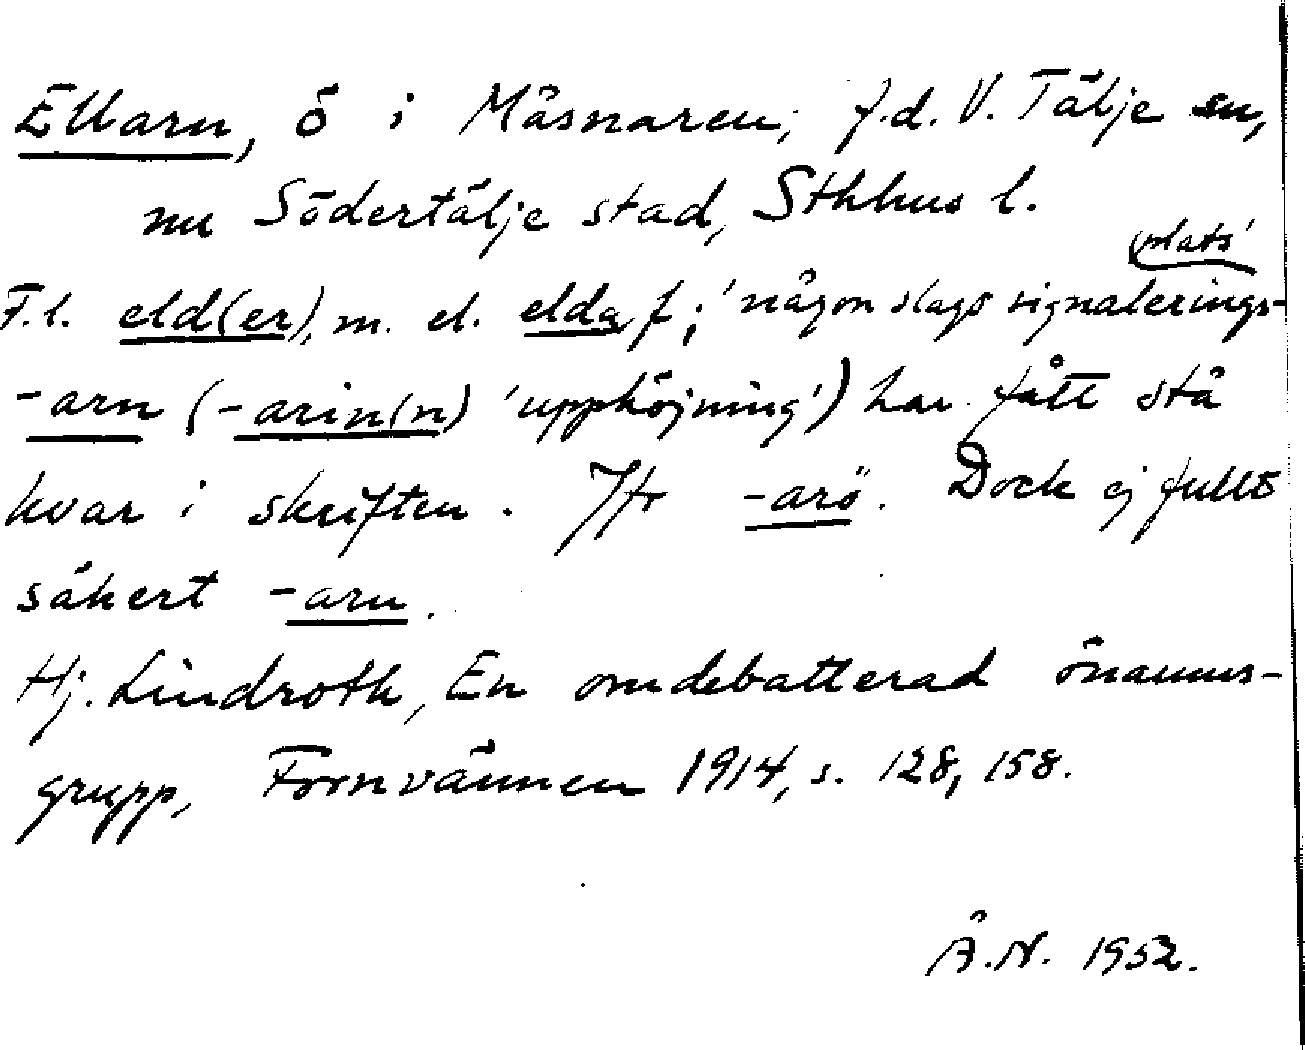 Ellarn, ö i Måsnaren, f.d. V. Tälje sn,
nu Södertälje stad, Sthlms l.
F.l. eld(er), m. el. elda f; 'någon slags signalerings-
plats'
-arn (-arin(n) 'upphöjning') har fått stå
kvar i skriften. Jfr -arö. Dock ej fullt
säkert -arn.
Hj. Lindroth, En omdebatterad önamns-
grupp, Fornvännen 1914, s. 128, 158.
Å.N. 1952.